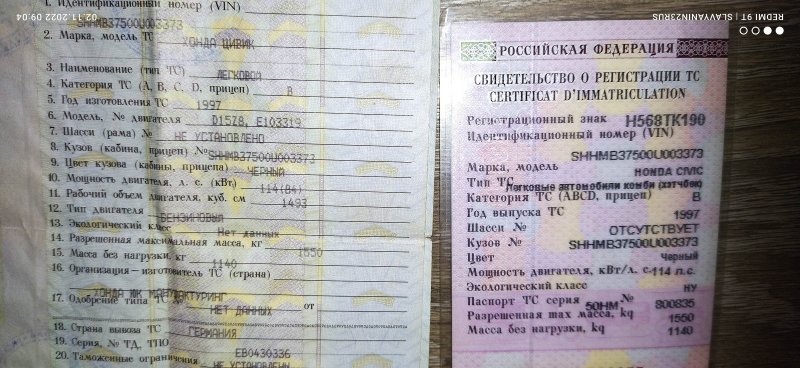 02.11.2022 09:04
REDMI 9T | SLAVYANIN23RUS
1. Идентификационный номер (VIN)
SHHMB37500U003373
2. Марка, модель ТС
ХОНДА ЦИВИК
3. Наименование (тип ТС)
ЛЕГКОВОЙ
4. Категория ТС (A, B, C, D, прицеп) В
5. Год изготовления ТС 1997
6. Модель, № двигателя D15Z8, E103319
7. Шасси (рама) № НЕ УСТАНОВЛЕНО
8. Кузов (кабина, прицеп) № SHHMB37500U003373
9. Цвет кузова (кабины, прицепа) ЧЕРНЫЙ
10. Мощность двигателя, л. с. (кВт) 114(84)
11. Рабочий объем двигателя, куб. см 1493
12. Тип двигателя БЕНЗИНОВЫЙ
13. Экологический класс Нет данных
14. Разрешенная максимальная масса, кг 1550
15. Масса без нагрузки, кг 1140
16. Организация – изготовитель ТС (страна)
ХОНДА ЮК МАНУФАКТУРИНГ
17. Одобрение типа ТС № НЕТ ДАННЫХ от
18. Страна вывоза ТС ГЕРМАНИЯ
19. Серия, № ТД, ТПО ЕВ0430336
20. Таможенные ограничения НЕ УСТАНОВЛЕНЫ
РОССИЙСКАЯ ФЕДЕРАЦИЯ
СВИДЕТЕЛЬСТВО О РЕГИСТРАЦИИ ТС
CERTIFICAT D'IMMATRICULATION
Регистрационный знак Н568ТК190
Идентификационный номер (VIN)
SHHMB37500U003373
Марка, модель HONDA CIVIC
Тип ТС Легковые автомобили комби (хэтчбек)
Категория ТС (ABCD, прицеп) В
Год выпуска ТС 1997
Шасси № ОТСУТСТВУЕТ
Кузов № SHHMB37500U003373
Цвет Черный
Мощность двигателя, кВт/л. с. -114 л.с.
Экологический класс НУ
Паспорт ТС серия 50НМ № 800835
Разрешенная max масса, kg 1550
Масса без нагрузки, kg 1140